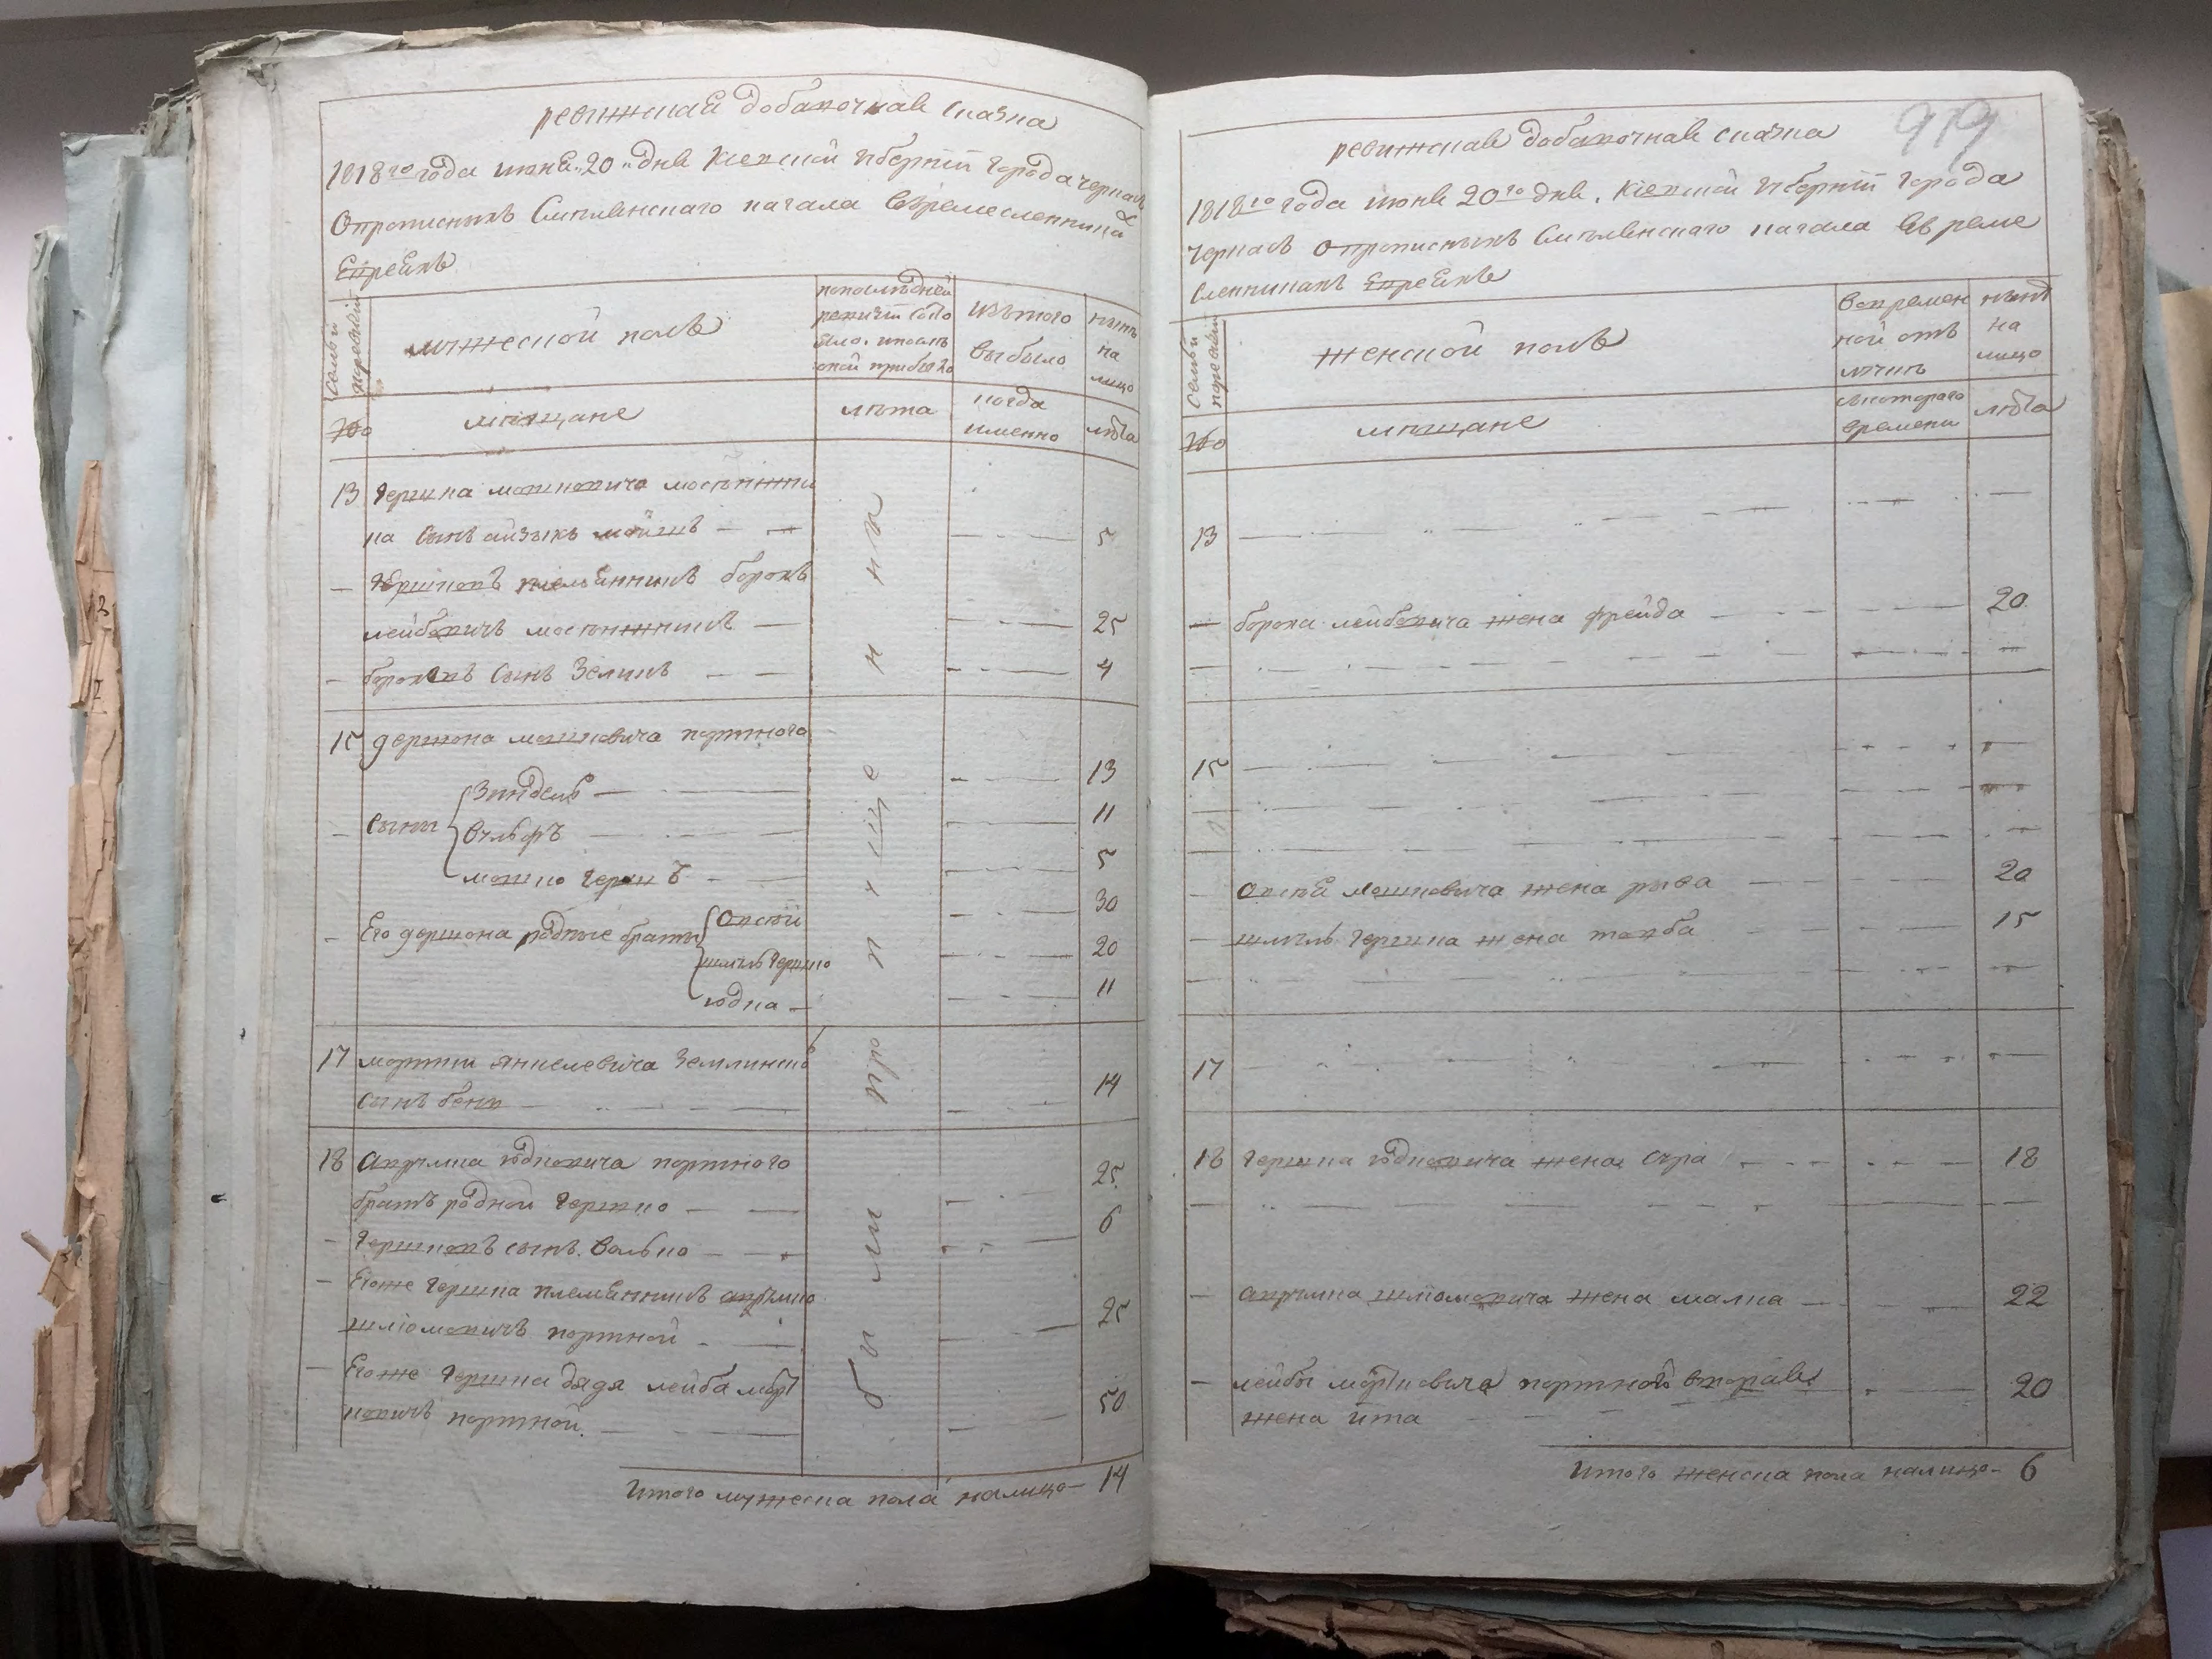 ревижская добавочная сказка
1818го года июня 20 дня Киевской губернии города черкасъ
О прописныхъ Смѣлянскаго кагала въ ремесленника
Евреяхъ
Семьи
мужеской полъ
по послѣдней
ревизіи состо
яло и послѣ
оной прибыло
изъ того
выбыло
нынѣ
на
лицо
№
мѣщане
лѣта
когда
именно
лѣта
13 Гершка мошковича
ка сынъ айзыкъ мойшъ 5
Гершковъ племянникъ борохъ
лейбовичъ 25
бороховъ сынъ Зеликъ 4
15 гершона мошковича портного
сыны
Зиндель 13
Вульфъ 11
мошко Гершъ 5
Его гершона родные братья
Овсѣй 30
шмуль Гершко 20
юдка 11
17 мортки янкелевича
сынъ бенз 14
18 Аврумка юдковича портного
братъ родной Гершко 25
Гершковъ сынъ Волько 6
Егоже Гершка племянникъ аврумко
шліомовичъ портной 25
Егоже Гершка дядя лейба морт
ковичъ портной 50
пропущены были
Итого мужеска пола налицо 14
919
ревижская добавочная сказка
1818го года июня 20го дня Киевской губернии города
черкасъ о прописныхъ Смѣлянскаго кагала въ реме
сленникахъ Евреяхъ
Семьи
женской полъ
во времен
ной отъ
лучкѣ
нынѣ
на
лицо
№
мѣщане
съ котораго
времени
лѣта
13
бороха лейбовича жена фрейда 20
15
Овсѣя мошковича жена рыва 20
шмуль Гершка жена товба 15
17
18 Гершка юдковича жена сура 18
аврумка шліомовича жена малка 22
лейбы мортковича портного вторая
жена йта 20
Итого женска пола налицо 6